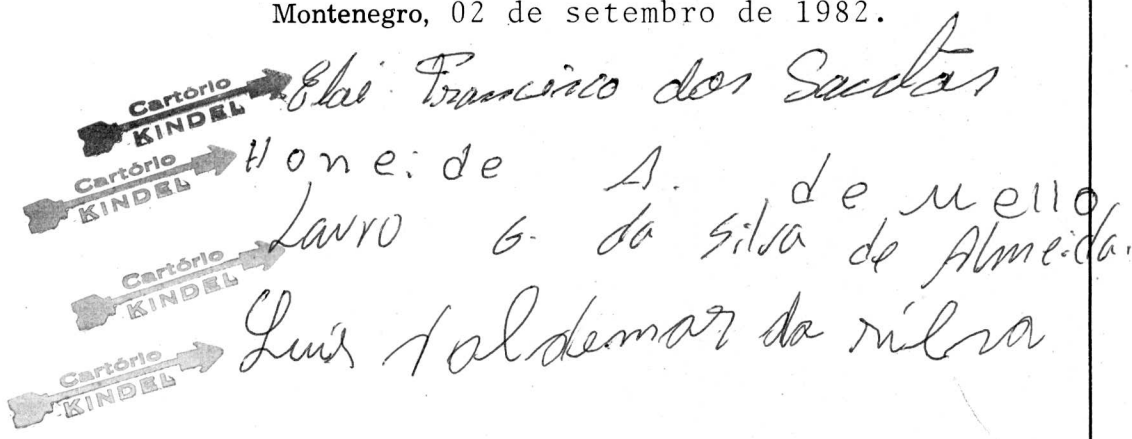 Montenegro, 02 de setembro de 1982.
Cartório KINDEL Elai Francisco dos Santos
Cartório KINDEL Honeide A. de Mello
Cartório KINDEL Lauro G. da Silva de Almeida.
Cartório KINDEL Luis Valdemar da silva